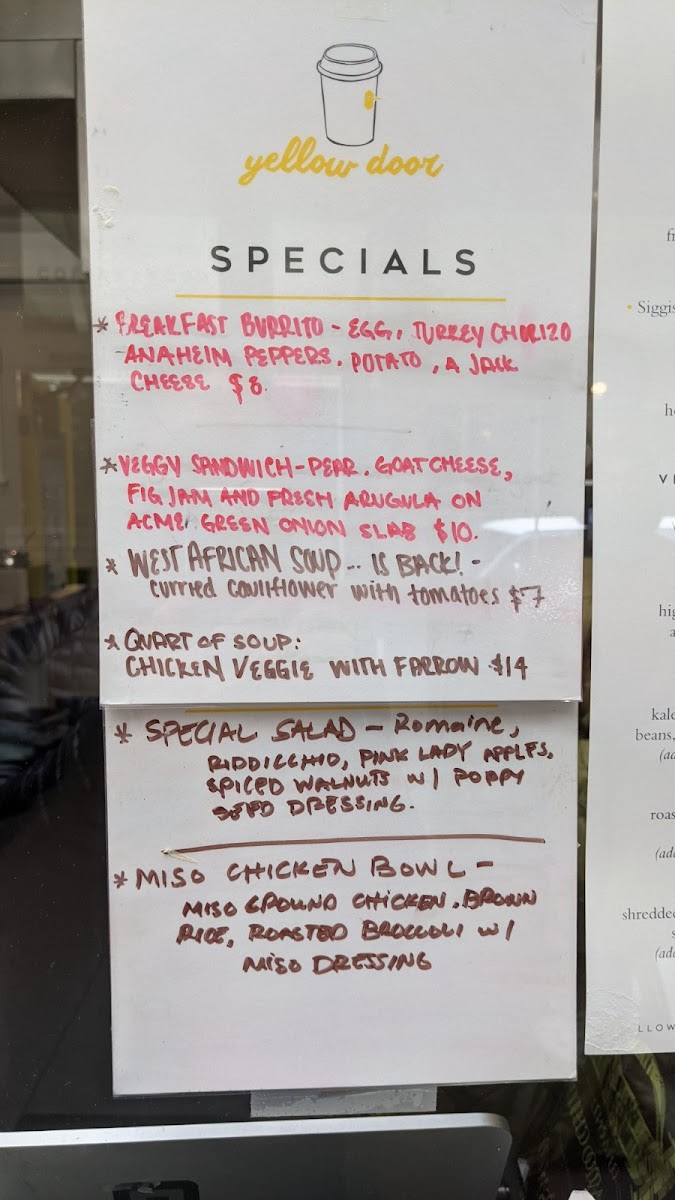 yellow door
SPECIALS
* BREAKFAST BURRITO - EGG, TURKEY CHORIZO
ANAHEIM PEPPERS, POTATO, A JACK
CHEESE $8
* VEGGY SANDWICH - PEAR, GOAT CHEESE,
FIG JAM AND FRESH ARUGULA ON
ACME GREEN ONION SLAB $10.
* WEST AFRICAN SOUP... IS BACK! -
curried cauliflower with tomatoes $7
* QUART OF SOUP:
CHICKEN VEGGIE WITH FARROW $14
* SPECIAL SALAD - Romaine,
RIDDICCHIO, PINK LADY APPLES,
SPICED WALNUTS W/ POPPY
SEED DRESSING.
* MISO CHICKEN BOWL -
MISO GROUND CHICKEN, BROWN
RICE, ROASTED BROCCOLI W/
MISO DRESSING
Siggis
kale
beans,
roas
shredded